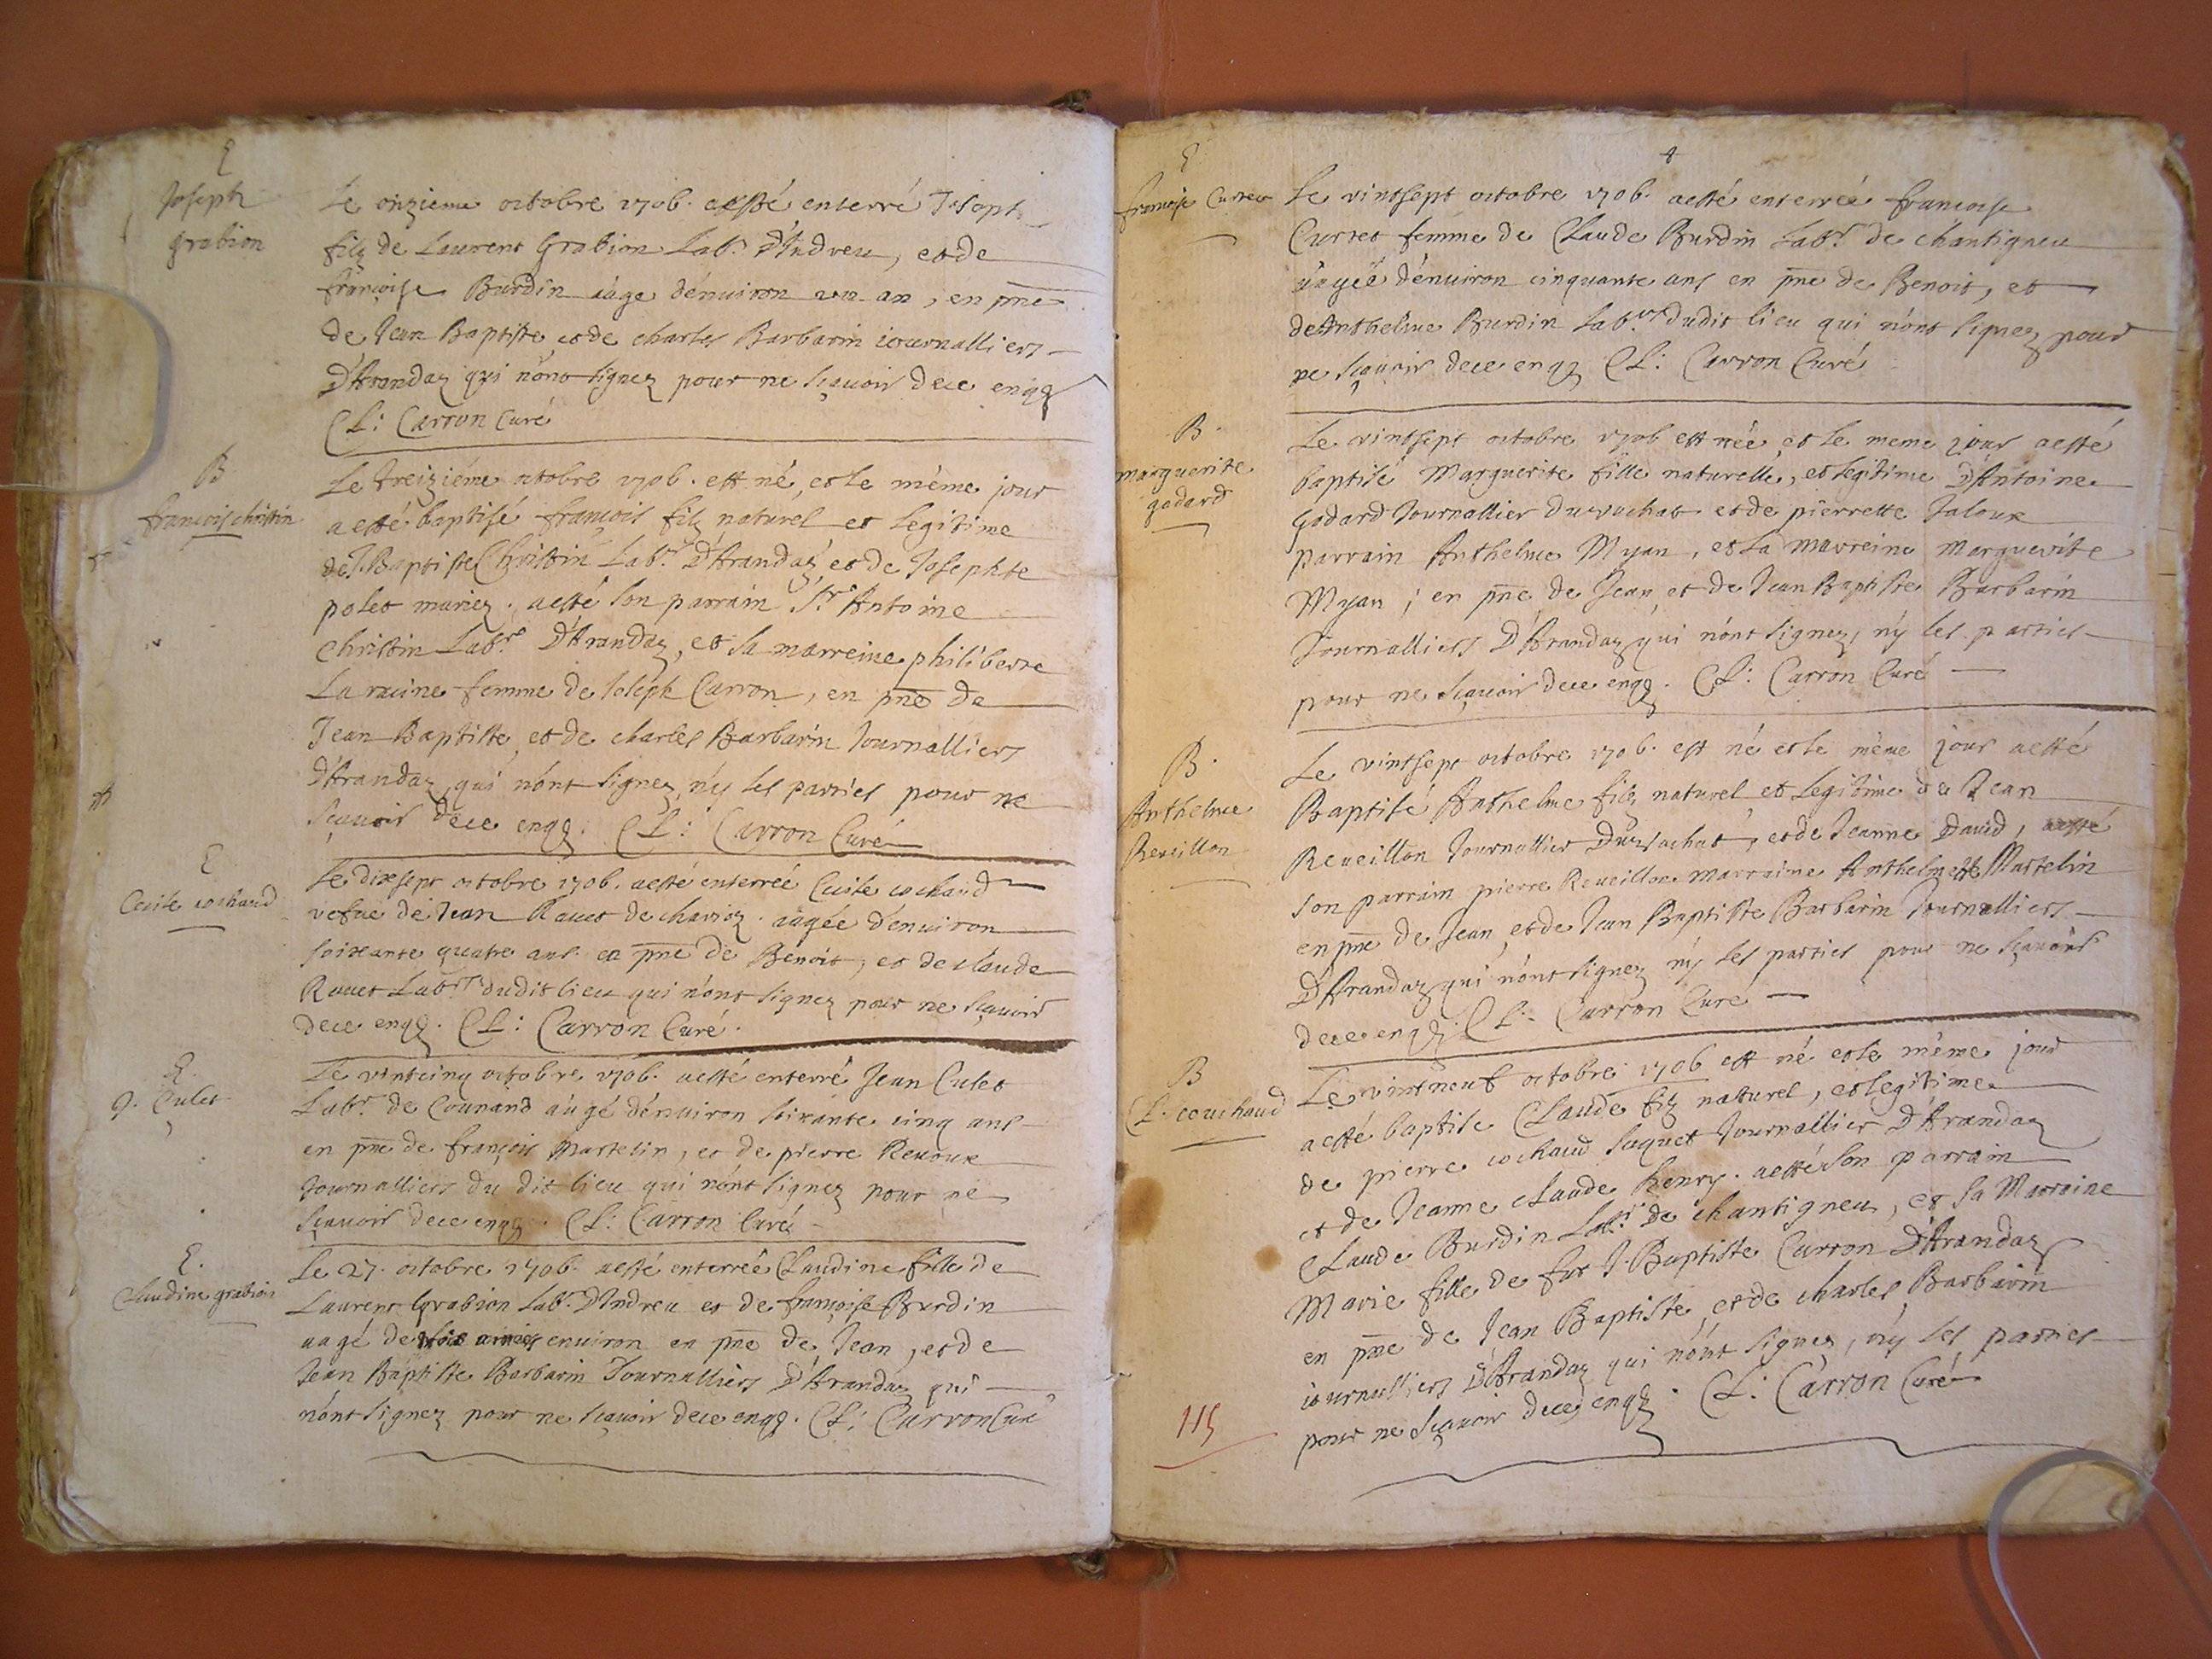 E
Joseph
grabion
Le onzieme octobre 1706. aesté enterré Joseph
filz de Laurent Grabion Labr. D'Indreu, et de
françoise Burdin aage d'enuiron un an, en pnce
de Jean Baptiste et de charles Barbarin iournalliers
D'Arandaz qui n'ont signez pour ne sçauoir de ce enqz
CL: Carron Curé
B
francois christin
Le treiziéme octobre 1706. est né, et le méme jour
a esté baptisé françois filz naturel et legitime
de J. Baptiste Christin Labr. D'Arandaz et de Josephte
polet mariez. aesté son parrain Sr. Antoine
Christin Labr. D'Arandaz, et sa marreine philiberte
Laracine femme de Joseph Carron, en pnce de
Jean Baptiste et de charles Barbarin Journalliers
D'Arandaz, qui n'ont signez n'y les parties pour ne
sçauoir de ce enqz. CL: Carron Curé
E
Cecile cochaud
Le dixsept octobre 1706. aesté enterrée Cecile cochaud
vefue de Jean Rauet de charioz. aagée d'enuiron
soixante quatre ans. en pnce de Benoit, et de claude
Rauet Labrs dudit lieu qui n'ont signez pour ne sçauoir
de ce enqz. CL: Carron Curé.
E.
J. Culet
Le vintcinq octobre 1706. aesté enterré Jean Culet
Labr. de Counand aagé d'enuiron soixante cinq ans
en pnce de françois Martelin, et de pierre Reuoux
Journalliers du dit lieu qui n'ont signez pour ne
sçauoir de ce enqz. CL: Carron Curé
E.
Claudine grabion
Le 27. octobre 1706. aesté enterrée Claudine fille de
Laurent Grabion Labr. D'Indreu et de françoise Burdin
aagé de enuiron en pnce de Jean, et de
Jean Baptiste Barbarin Journalliers D'Arandaz qui
n'ont signez pour ne sçauoir de ce enqz. CL: Carron Curé
4
E
françoise Curtet
Le vintsept octobre 1706. aesté enterrée francoise
Curtet femme de Claude Burdin Labr. de chantigneu
aagée d'enuiron cinquante ans en pnce de Benoit, et
de Anthelme Burdin Labrs dudit lieu qui n'ont signez pour
ne sçauoir de ce enqz CL: Carron Curé
B.
marguerite
godard
Le vintsept octobre 1706 est née, et le meme jour aesté
baptisé Marguerite fille naturelle, et legitime D'Antoine
Godard Journallier Du vachat et de pierrette Jaloux
parrain Anthelme Myan, et la marreine marguerite
Myan; en pnce de Jean, et de Jean Baptiste Barbarin
Journalliers D'Arandaz qui n'ont signez, n'y les parties
pour ne sçauoir de ce enqz. CL: Carron Curé
B.
Anthelme
Reueillon
Le vintsept octobre 1706. est né et le méme jour aesté
Baptisé Anthelme filz naturel et legitime de Jean
Reueillon Journallier Du vachat, et de Jeanne Dauid, aesté
son parrain pierre Reueillon marraine Anthelmette Martelin
en pnce de Jean, et de Jean Baptiste Barbarin Journalliers
D'Arandaz qui n'ont signez n'y les parties pour ne sçauoir
de ce enqz. CL: Carron Curé
B
CL. couchaud
Le vintneuf octobre 1706 est né et le méme jour
aesté baptisé Claude filz naturel, et legitime
de pierre cochaud Suquet Journallier D'Arandaz
et de Jeanne claude henry. aesté son parrain
Claude Burdin Labr. De chantigneu, et sa Marraine
Marie fille de fut J. Baptiste Carron D'Arandaz
en pnce de Jean Baptiste, et de charles Barbarin
iournalliers D'Arandaz qui n'ont signez, n'y les parties
pour ne sçauoir de ce enqz. CL: Carron Curé
115